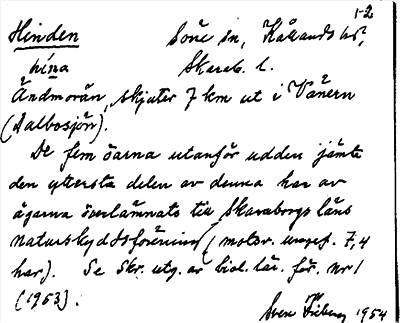 1-2
Hinden Söne sn, Kållands hd,
hína Skarab. l.
Ändmorän, skjuter 7 km ut i Vänern
(Dalbosjön).
De fem öarna utanför udden jämte
den yttersta delen av denna har av
ägarna överlämnats till Skaraborgs läns
naturskyddsförening (motsv. ungef. 7,4
har). Se Skr. utg. av biol. lär. för. nr 1
(1953).
Sven 1954